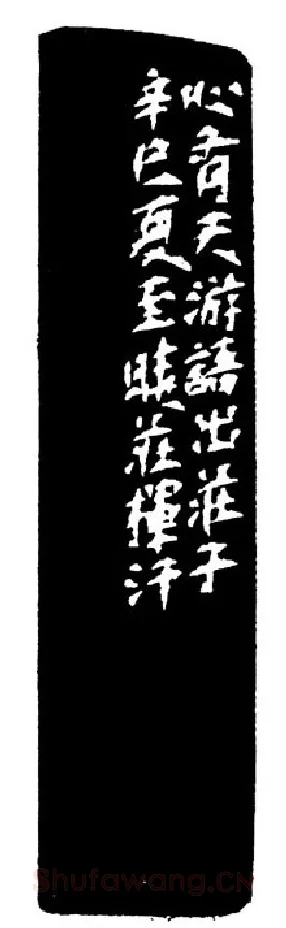 心有天游語出莊子
辛巳夏至莊揮汗
Shufawang.CN